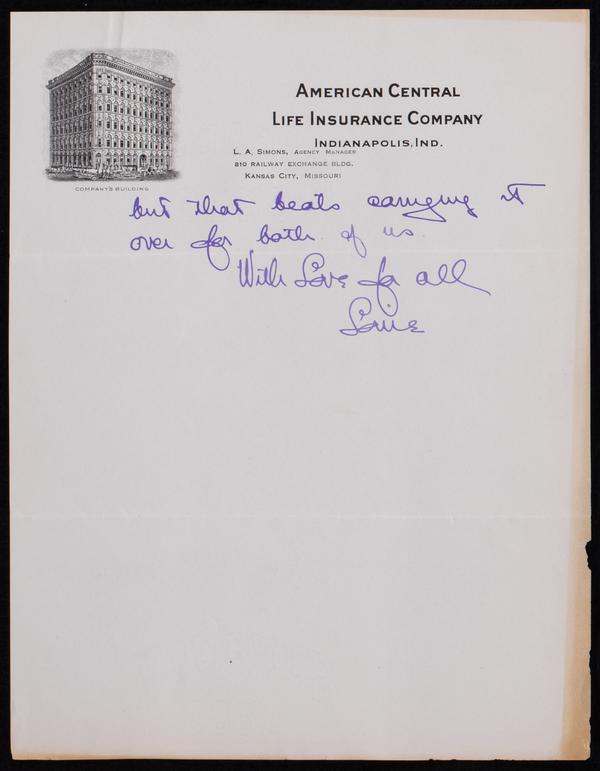 AMERICAN CENTRAL
LIFE INSURANCE COMPANY
INDIANAPOLIS, IND.
L. A. SIMONS, AGENCY MANAGER
210 RAILWAY EXCHANGE BLDG.
KANSAS CITY, MISSOURI
COMPANY'S BUILDING
but that beats carrying it
over for both of us.
With Love for all
Louie